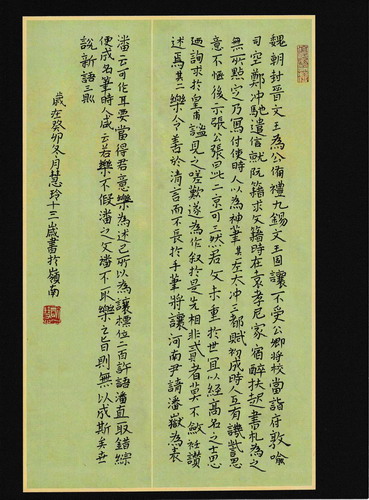 魏朝封晉文王為公備禮九錫文王固讓不受公卿將校當詣府敦喻
司空鄭沖馳遣信就阮籍求文籍時在袁孝尼家宿醉扶起書札為之
無所點定乃寫付使時人以為神筆其一左太沖三都賦初成時人互有譏訾思
意不愜後示張公張曰此二京可三然君文未重於世宜以經高名之士思
迺詢求於皇甫謐見之嗟歎遂為作敘於是先相非貳者莫不斂衽讚
述焉其二樂令善於清言而不長於手筆將讓河南尹請潘嶽為表
潘云可作耳要當得君意樂為述己所以為讓標位二百許語潘直取錯綜
便成名筆時人咸云若樂不假潘之文潘不取樂之旨則無以成斯矣世
說新語三則
歲在癸卯冬月慧玲十三歲書於嶺南